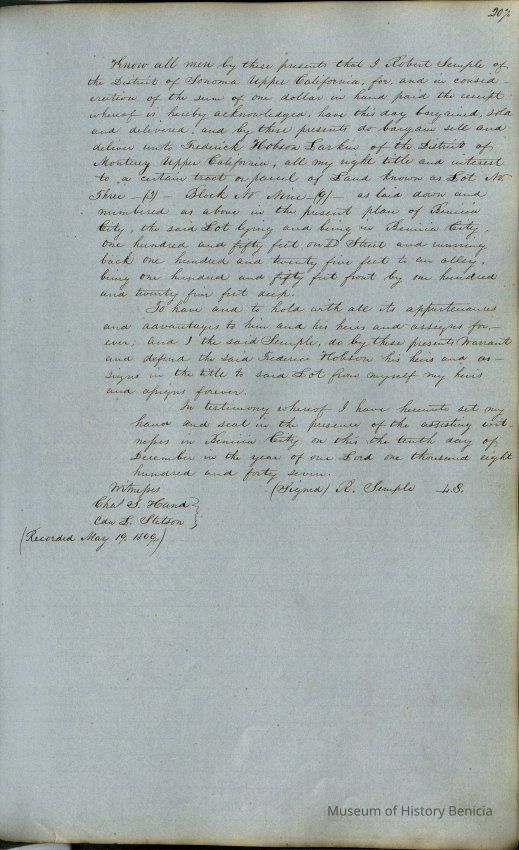 207
Know all men by these presents that I Robert Semple of
the District of Sonoma Upper California, for, and in consid-
eration of the sum of one dollar in hand paid the receipt
whereof is hereby acknowledged, have this day bargained, sold
and delivered, and by these presents do bargain sell and
deliver unto Frederick Hobson Larkin of the District of
Monterey Upper California, all my right title and interest
to a certain tract or parcel of Land known as Lot No
Three -(3)- Block No Nine -(9)- as laid down and
numbered as above in the present plan of Benicia
City, the said Lot lying and being in Benicia City,
one hundred and fifty feet on D. Street and running
back one hundred and twenty five feet to an alley,
being one hundred and fifty feet front by one hundred
and twenty five feet deep.
To have and to hold with all its appurtenances
and advantages to him and his heirs and assigns for,
ever; and I the said Semple, do by these presents Warrant
and defend the said Frederic Hobson his heirs and as-
signs in the title to said Lot from myself my heirs
and assigns forever.
In testimony whereof I have hereunto set my
hand and seal in the presence of the attesting wit-
nesses in Benicia City on this the tenth day of
December in the year of our Lord one thousand eight
hundred and forty seven.
Witnesses (Signed) R. Semple L.S.
Chas S. Hand
Edw L. Stetson
(Recorded May 19,
Museum of History Benicia